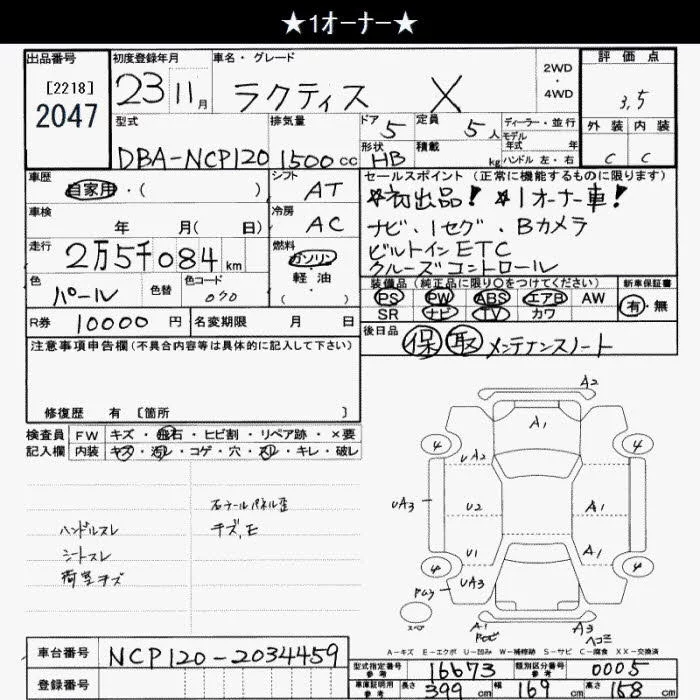 ★1オーナー★
出品番号
[2218]
2047
初度登録年月
23 11月
車名・グレード
ラクティス X
2WD
・
4WD
評価点
3.5
外装 内装
C C
型式
DBA-NCP120
排気量
1500cc
ドア 5
形状 HB
定員 5人
積載 kg
ディーラー・並行
モデル
年式 年
ハンドル 左・右
車歴
自家用・( )
シフト
AT
車検
年 月( 日)
冷房
AC
走行
2万5千084km
燃料
ガソリン
軽油
( )
色
パール
色替
色コード
070
R券 10000円
名変期限 月 日
セールスポイント(正常に機能するものに限ります)
☆初出品! ☆1オーナー車!
ナビ・1セグ・Bカメラ
ビルトインETC
クルーズコントロール
装備品(純正品に限り○をつけてください)
PS PW ABS エアB AW
SR ナビ TV カワ
新車保証書
有・無
後日品
保 取 メンテナンスノート
注意事項申告欄(不具合内容等は具体的に記入して下さい)
修復歴 有 [箇所 ]
検査員
記入欄
FW キズ・飛石・ヒビ割・リペア跡・×要
内装 キズ・汚レ・コゲ・穴・スレ・キレ・破レ
ハンドルスレ
シートスレ
荷室キズ
右クールパネル歪
キズ,E
A2
A1
4 4
UA2
UA3
U2
A1
U1
A1
4 4
UA3
スペア
A1
A3
ヘコミ
A-キズ E-エクボ U-凹み W-補修跡 S-サビ C-腐食 XX-交換済
車台番号
NCP120-2034459
登録番号
型式指定番号
参考
16673
類別区分番号
参考
0005
車庫証明用
参考
長さ 399cm
幅 169cm
高さ 158cm